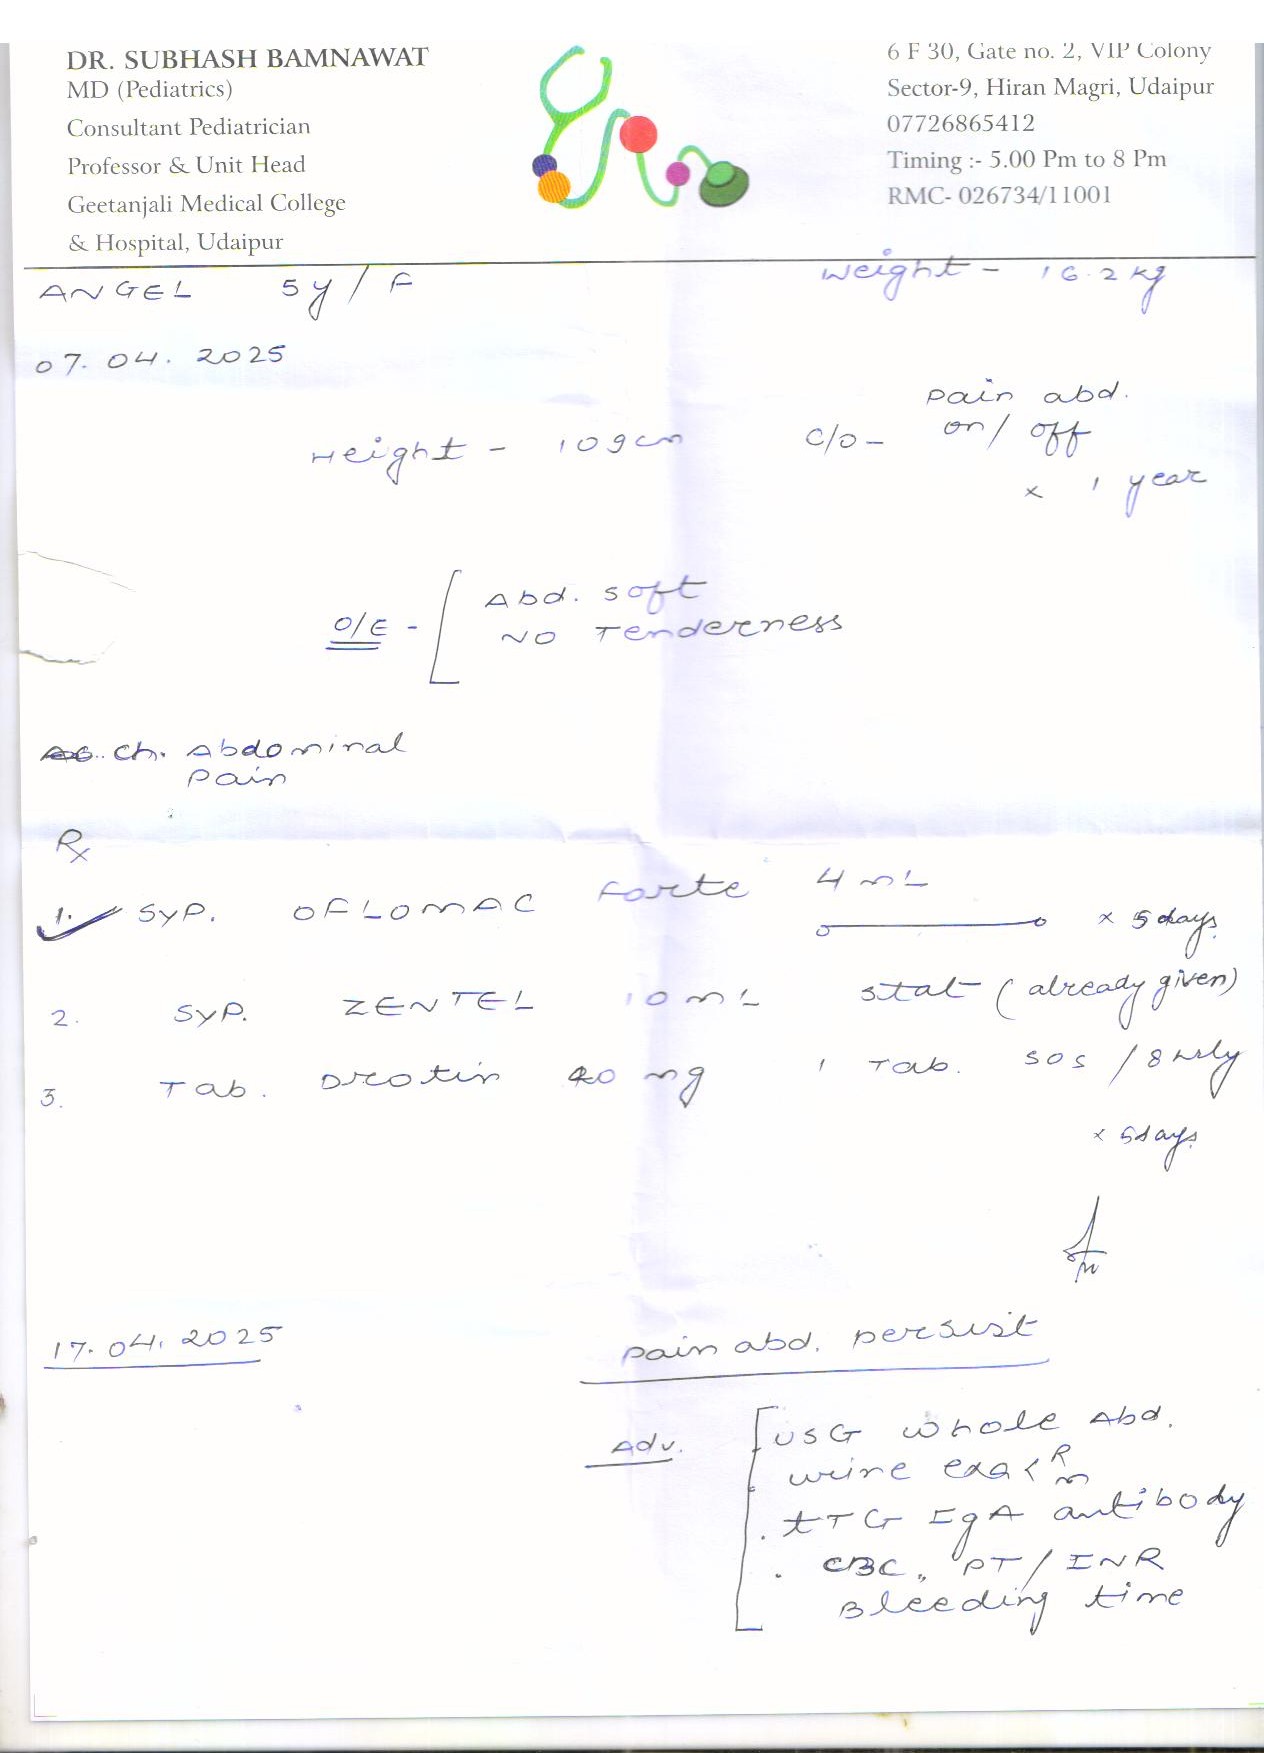 DR. SUBHASH BAMNAWAT
MD (Pediatrics)
Consultant Pediatrician
Professor & Unit Head
Geetanjali Medical College
& Hospital, Udaipur
6 F 30, Gate no. 2, VIP Colony
Sector-9, Hiran Magri, Udaipur
07726865412
Timing :- 5.00 Pm to 8 Pm
RMC- 026734/11001
ANGEL 5y/F
Weight - 16.2kg
07.04.2025
Height - 109cm
C/O - Pain abd.
on/off
x 1 year
O/E - Abd. soft
NO Tenderness
Ch. Abdominal
Pain
Rx
1. Syp. OFLOMAC forte 4 mL x 5 days
2. Syp. ZENTEL 10 mL stat (already given)
3. Tab. Drotin 40 mg 1 Tab. SOS / 8 hrly
x 5days
17.04.2025
pain abd. persist
Adv. USG whole Abd.
urine exa < R m
. tTG IgA antibody
. CBC, PT/INR
Bleeding time